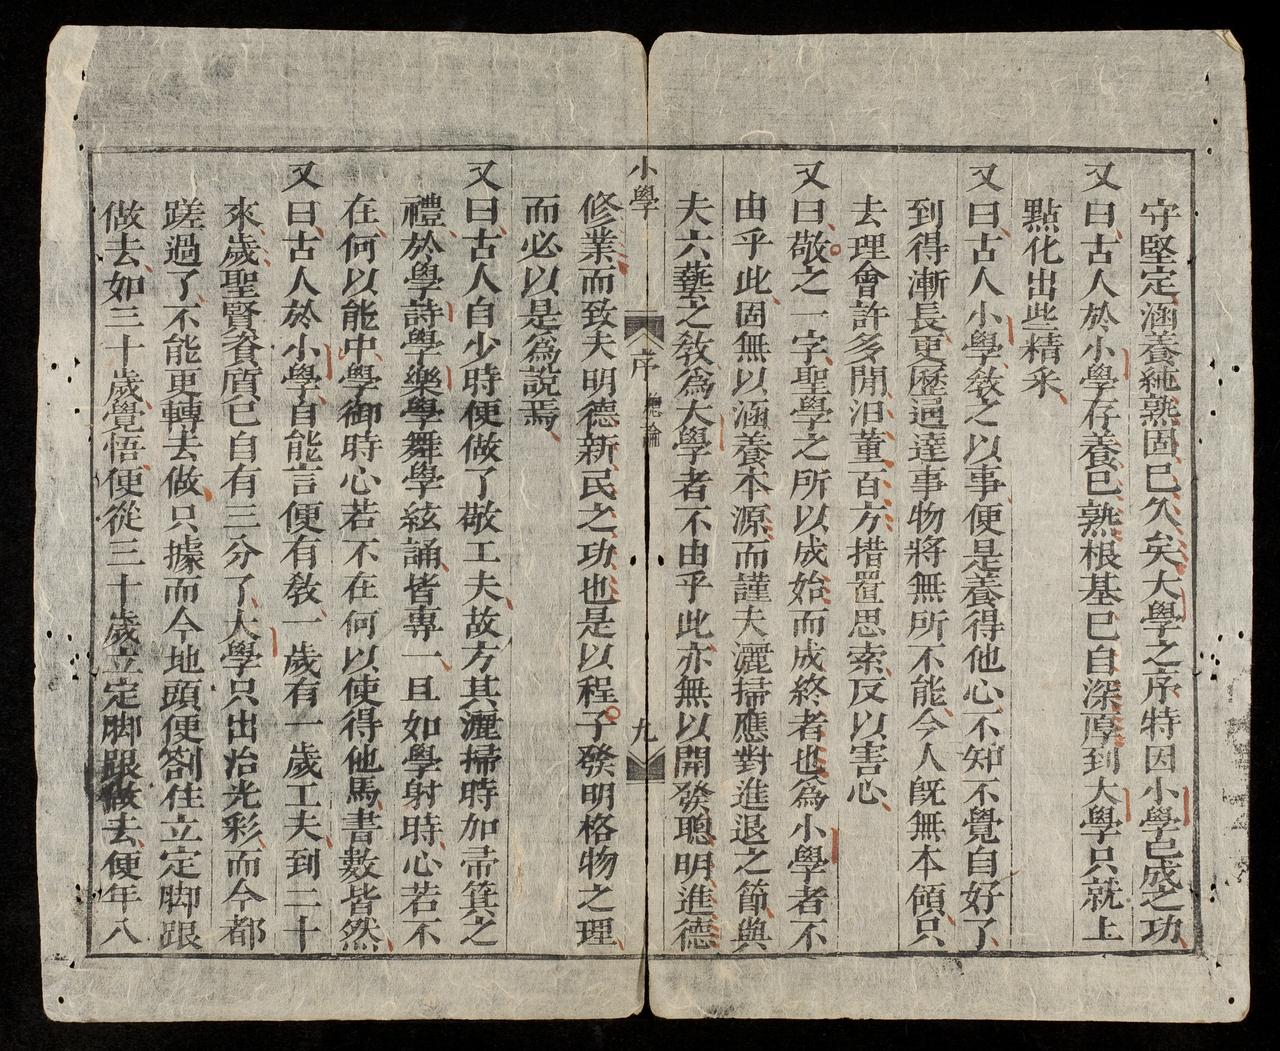 守堅定涵養純熟固已久矣大學之序特因小學已成之功
又曰古人於小學存養已熟根基已自深厚到大學只就上
點化出些精采
又曰古人小學敎之以事便是養得他心不知不覺自好了
到得漸長更歷通達事物將無所不能今人旣無本領只
去理會許多閒汨董百方措置思索反以害心
又曰敬之一字聖學之所以成始而成終者也爲小學者不
由乎此固無以涵養本源而謹夫灑掃應對進退之節與
夫六藝之敎爲大學者不由乎此亦無以開發聰明進德
小學 序 總論 九
修業而致夫明德新民之功也是以程子發明格物之理
而必以是爲說焉
又曰古人自少時便做了敬工夫故方其灑掃時加帚箕之
禮於學詩學樂學舞學絃誦皆專一且如學射時心若不
在何以能中學御時心若不在何以使得他馬書數皆然
又曰古人於小學自能言便有敎一歲有一歲工夫到二十
來歲聖賢資質已自有三分了大學只出治光彩而今都
蹉過了不能更轉去做只據而今地頭便劄住立定脚跟
做去如三十歲覺悟便從三十歲立定脚跟做去便年八